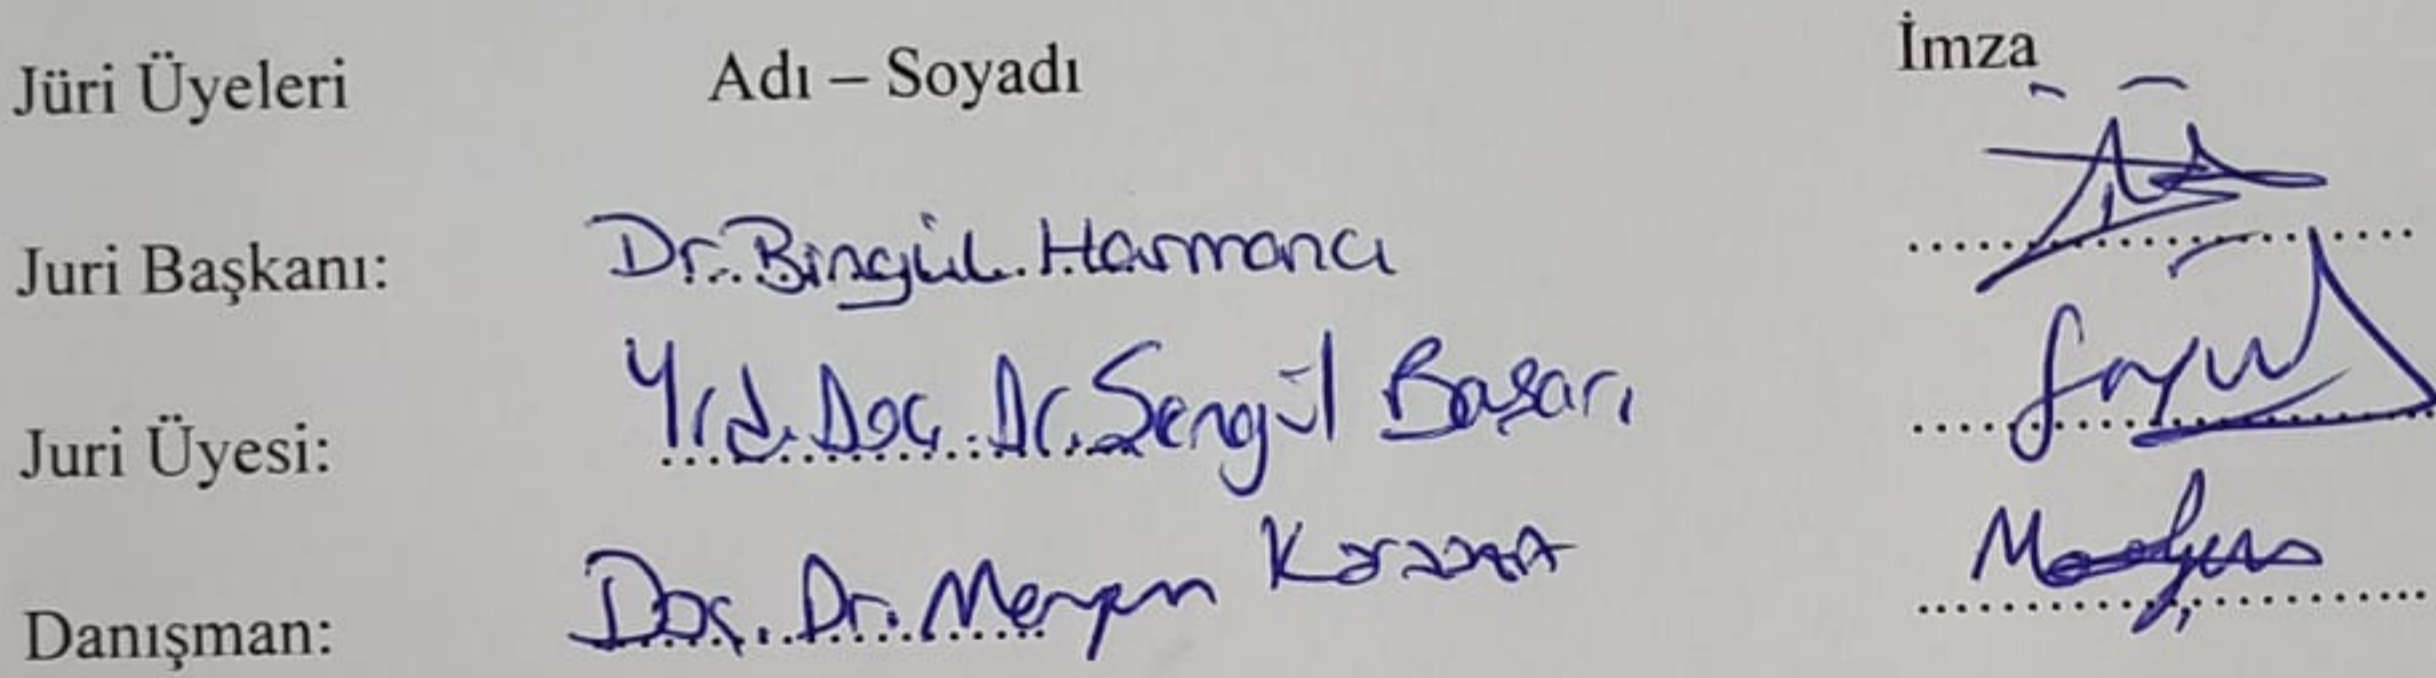 Jüri Üyeleri Adı – Soyadı İmza
Juri Başkanı: Dr. Bingül Harmancı
Juri Üyesi: Yrd. Doç. Dr. Şengül Başarı
Danışman: Doç. Dr. Meryem